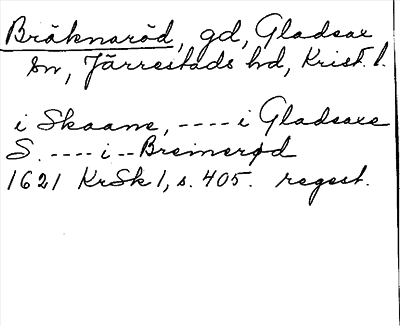 Bräknaröd, gd, Gladsax
sn, Järrestads hd, Krist. l.
i Skaane, ---- i Gladsaxe
S. ---- i -- Breinerød
1621 KrSk 1, s. 405. regest.